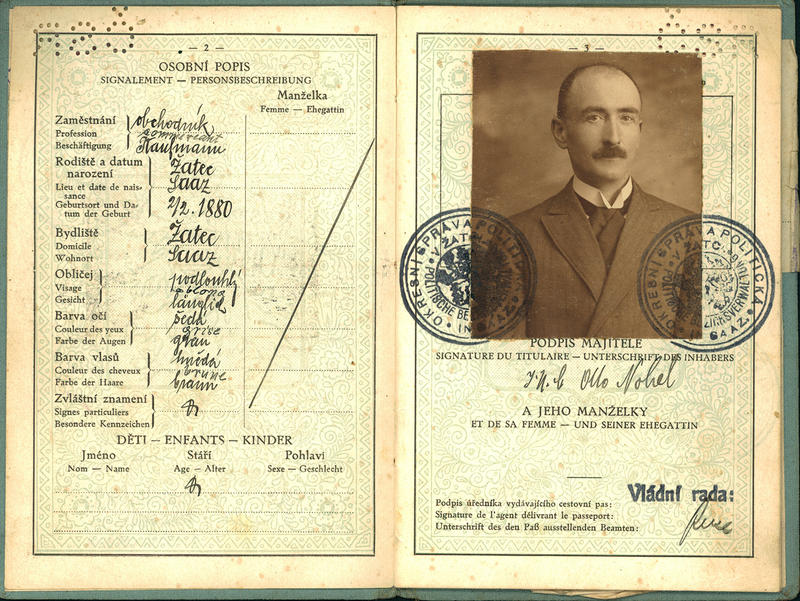 — 2 —
OSOBNÍ POPIS
SIGNALEMENT — PERSONSBESCHREIBUNG
Manželka
Femme — Ehegattin
Zaměstnání
Profession
Beschäftigung
obchodník
commerçant
Kaufmann
Rodiště a datum
narození
Lieu et date de nais-
sance
Geburtsort und Da-
tum der Geburt
Žatec
Saaz
2/2. 1880
Bydliště
Domicile
Wohnort
Žatec
Saaz
Obličej
Visage
Gesicht
podlouhlý
oblong
länglich
Barva očí
Couleur des yeux
Farbe der Augen
šedá
grise
grau
Barva vlasů
Couleur des cheveux
Farbe der Haare
hnědá
brune
braun
Zvláštní znamení
Signes particuliers
Besondere Kennzeichen
DĚTI — ENFANTS — KINDER
Jméno
Nom — Name
Stáří
Age — Alter
Pohlaví
Sexe — Geschlecht
— 3 —
OKRESNÍ SPRÁVA POLITICKÁ
V ŽATCI
POLITISCHE
IN
OKRESNÍ SPRÁVA POLITICKÁ
V ŽATCI
BEZIRKSVERWALTUNG
SAAZ
PODPIS MAJITELE
SIGNATURE DU TITULAIRE — UNTERSCHRIFT DES INHABERS
Otto
A JEHO MANŽELKY
ET DE SA FEMME — UND SEINER EHEGATTIN
Vládní rada:
Podpis úředníka vydávajícího cestovní pas:
Signature de l'agent délivrant le passeport:
Unterschrift des den Paß ausstellenden Beamten: